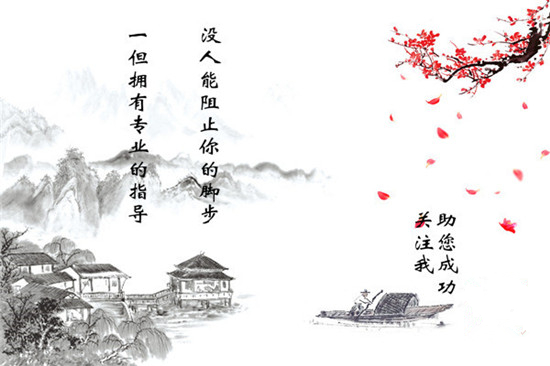 一但拥有专业的指导
没人能阻止你的脚步
关注我
助您成功